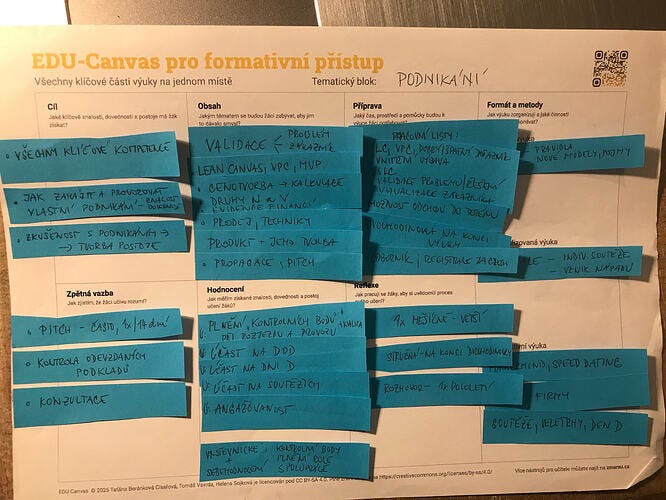 EDU-Canvas pro formativní přístup
Všechny klíčové části výuky na jednom místě
Tematický blok: PODNIKÁNÍ
Cíl
Jaké klíčové znalosti, dovednosti a postoje má žák
získat?
• VŠECHNY KLÍČOVÉ KOMPETENCE
• JAK ZAHÁJIT A PROVOZOVAT
VLASTNÍ PODNIKÁNÍ - ZNALOST
• ZKUŠENOST S PODNIKÁNÍM →
→ TVORBA POSTOJE
Obsah
Jakým tématem se budou žáci zabývat, aby jim
to dávalo smysl?
VALIDACE
PROBLÉM
ZÁKAZNÍK
LEAN CANVAS, VPC, MVP
• CENOTVORBA → KALKULACE
DRUHY N a V
EVIDENCE FINANCÍ
• PRODEJ, TECHNIKY
PRODUKT + JEHO TVORBA
• PROPAGACE, PITCH
Příprava
Jaký čas, prostředí a pomůcky budou k
PRACOVNÍ LISTY:
LC, VPC, DOBRÝ/ŠPATNÝ ZÁKAZNÍK
VNITŘNÍ VÝBAVA
VALIDACE PROBLÉMU/ŘEŠENÍ
VIZUALIZACE ZÁKAZNÍKA
MOŽNOST ODCHODU DO TERÉNU
DVOUHODINOVKA NA KONCI
VÝUKY
ODBORNÍK, REGISTRACE
Formát a metody
Jak výuku zorganizuji a jaké činnosti
PRAVIDLA
NOVÉ MODELY, POJMY
výuka
- INDIV. SOUTĚŽE
- VZNIK NÁPADU
výuka
SPEED DATING
FIRMY
SOUTĚŽE, VELETRHY, DEN D
Zpětná vazba
Jak zjistím, že žáci učivu rozumí?
• PITCH - ČASTO, 1x/14 dní
• KONTROLA ODEVZDANÝCH
PODKLADŮ
• KONZULTACE
Hodnocení
Jak měřím získané znalosti, dovednosti a postoj
učení žáků?
PLNĚNÍ "KONTROLNÍCH BODŮ" + KVALITA
PŘI ROZJEZDU A PROVOZU
ÚČAST NA DOD
ÚČAST NA DNI D
ÚČAST NA SOUTĚŽÍCH
ANGAŽOVANOST
VRSTEVNICKÉ
+
SEBEHODNOCENÍ
KONTROLNÍ BODY
PLNĚNÍ ROLE
SPOLUPRÁCE
Reflexe
Jak pracuji se žáky, aby si uvědomili proces
1x MĚSÍČNĚ - VĚTŠÍ
STRUČNÁ - NA KONCI DVOUHODINOVKY
ROZHOVOR - 1x POLOLETÍ
EDU Canvas © 2025 Taťána Beránková Císařová, Tomáš Vavrda, Helena Sojková je licencován pod CC BY-SA 4.0.
https://creativecommons.org/licenses/by-sa/4.0/
Více nástrojů pro učitele můžete najít na